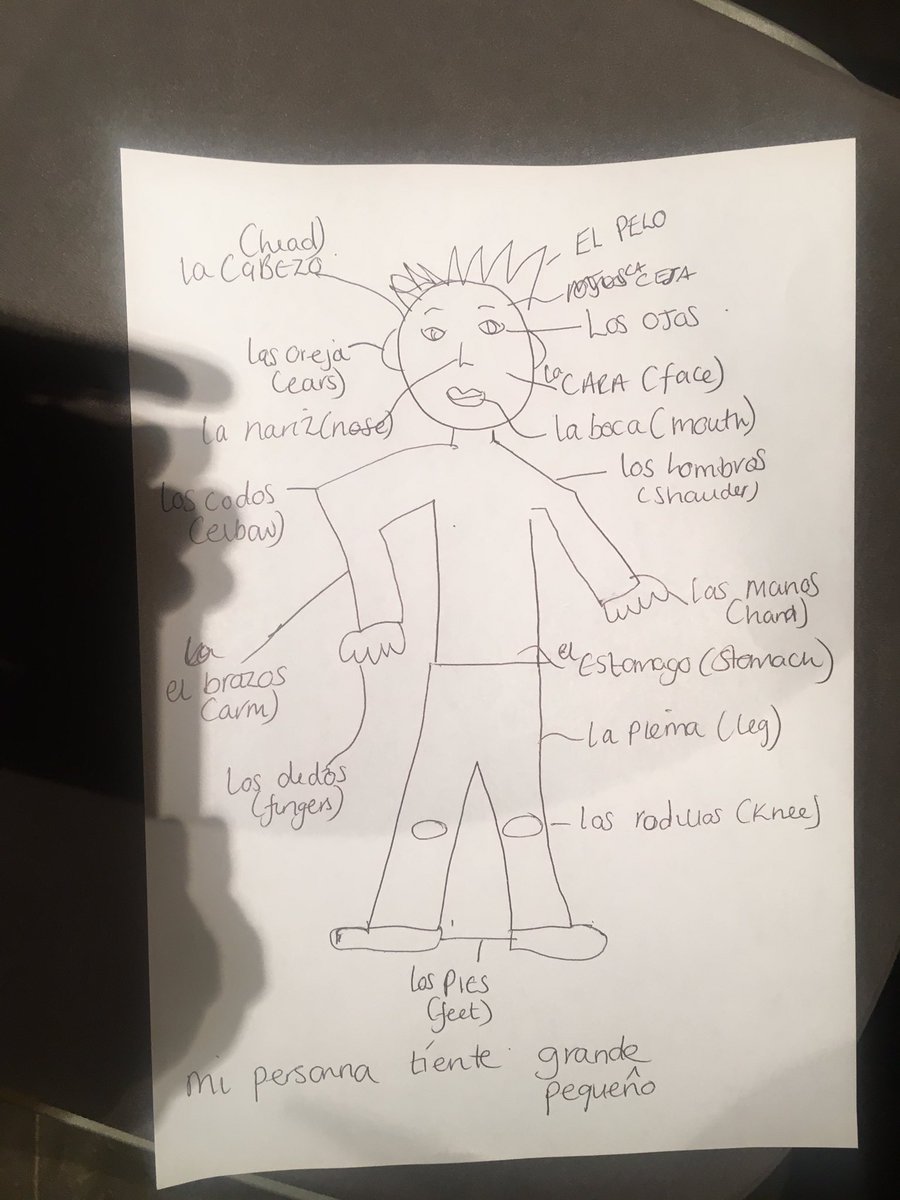 (head)
la CABEZO
EL PELO
LA CEJA
Los OJOS
las oreja
(ears)
la CARA (face)
la nariz (nose)
la boca (mouth)
los hombros
(Shauder)
los codos
(elbow)
las manos
(hand)
la
el brazos
(arm)
el Estomago (Stomach)
la pierna (leg)
los dedos
(fingers)
las rodillas (knee)
los PIES
(feet)
mi persanna tiente grande
pequeño